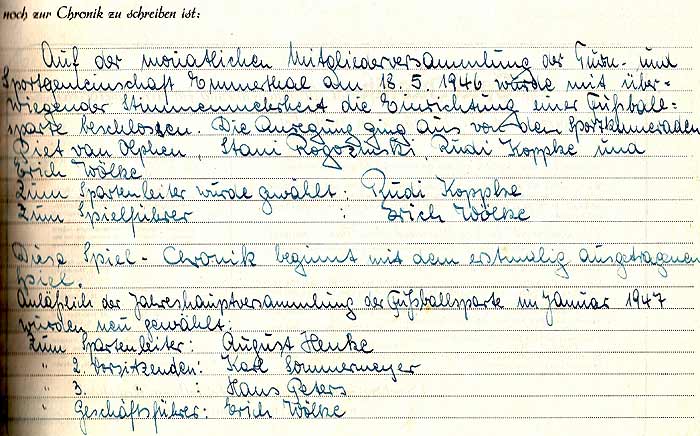 noch zur Chronik zu schreiben ist:
Auf der monatlichen Mitgliederversammlung der Turn- und
Sportgemeinschaft Emmerthal am 18.5.1946 wurde mit über-
wiegender Stimmenmehrheit die Einrichtung einer Fußball-
sparte beschlossen. Die Anregung ging aus von den Sportkameraden
Piet van Olphen, Stani Rogozinski, Rudi Koppke und
Erich Wölke
Zum Spartenleiter wurde gewählt: Rudi Koppke
Zum Spielführer : Erich Wölke
Diese Spiel-Chronik beginnt mit dem erstmalig ausgetragenen
Spiel.
Anläßlich der Jahreshauptversammlung der Fußballsparte im Januar 1947
wurden neu gewählt:
Zum Spartenleiter: August Henke
" 2. Vorsitzenden: Karl Sommermeyer
" 3. " : Hans Peters
" Geschäftsführer: Erich Wölke